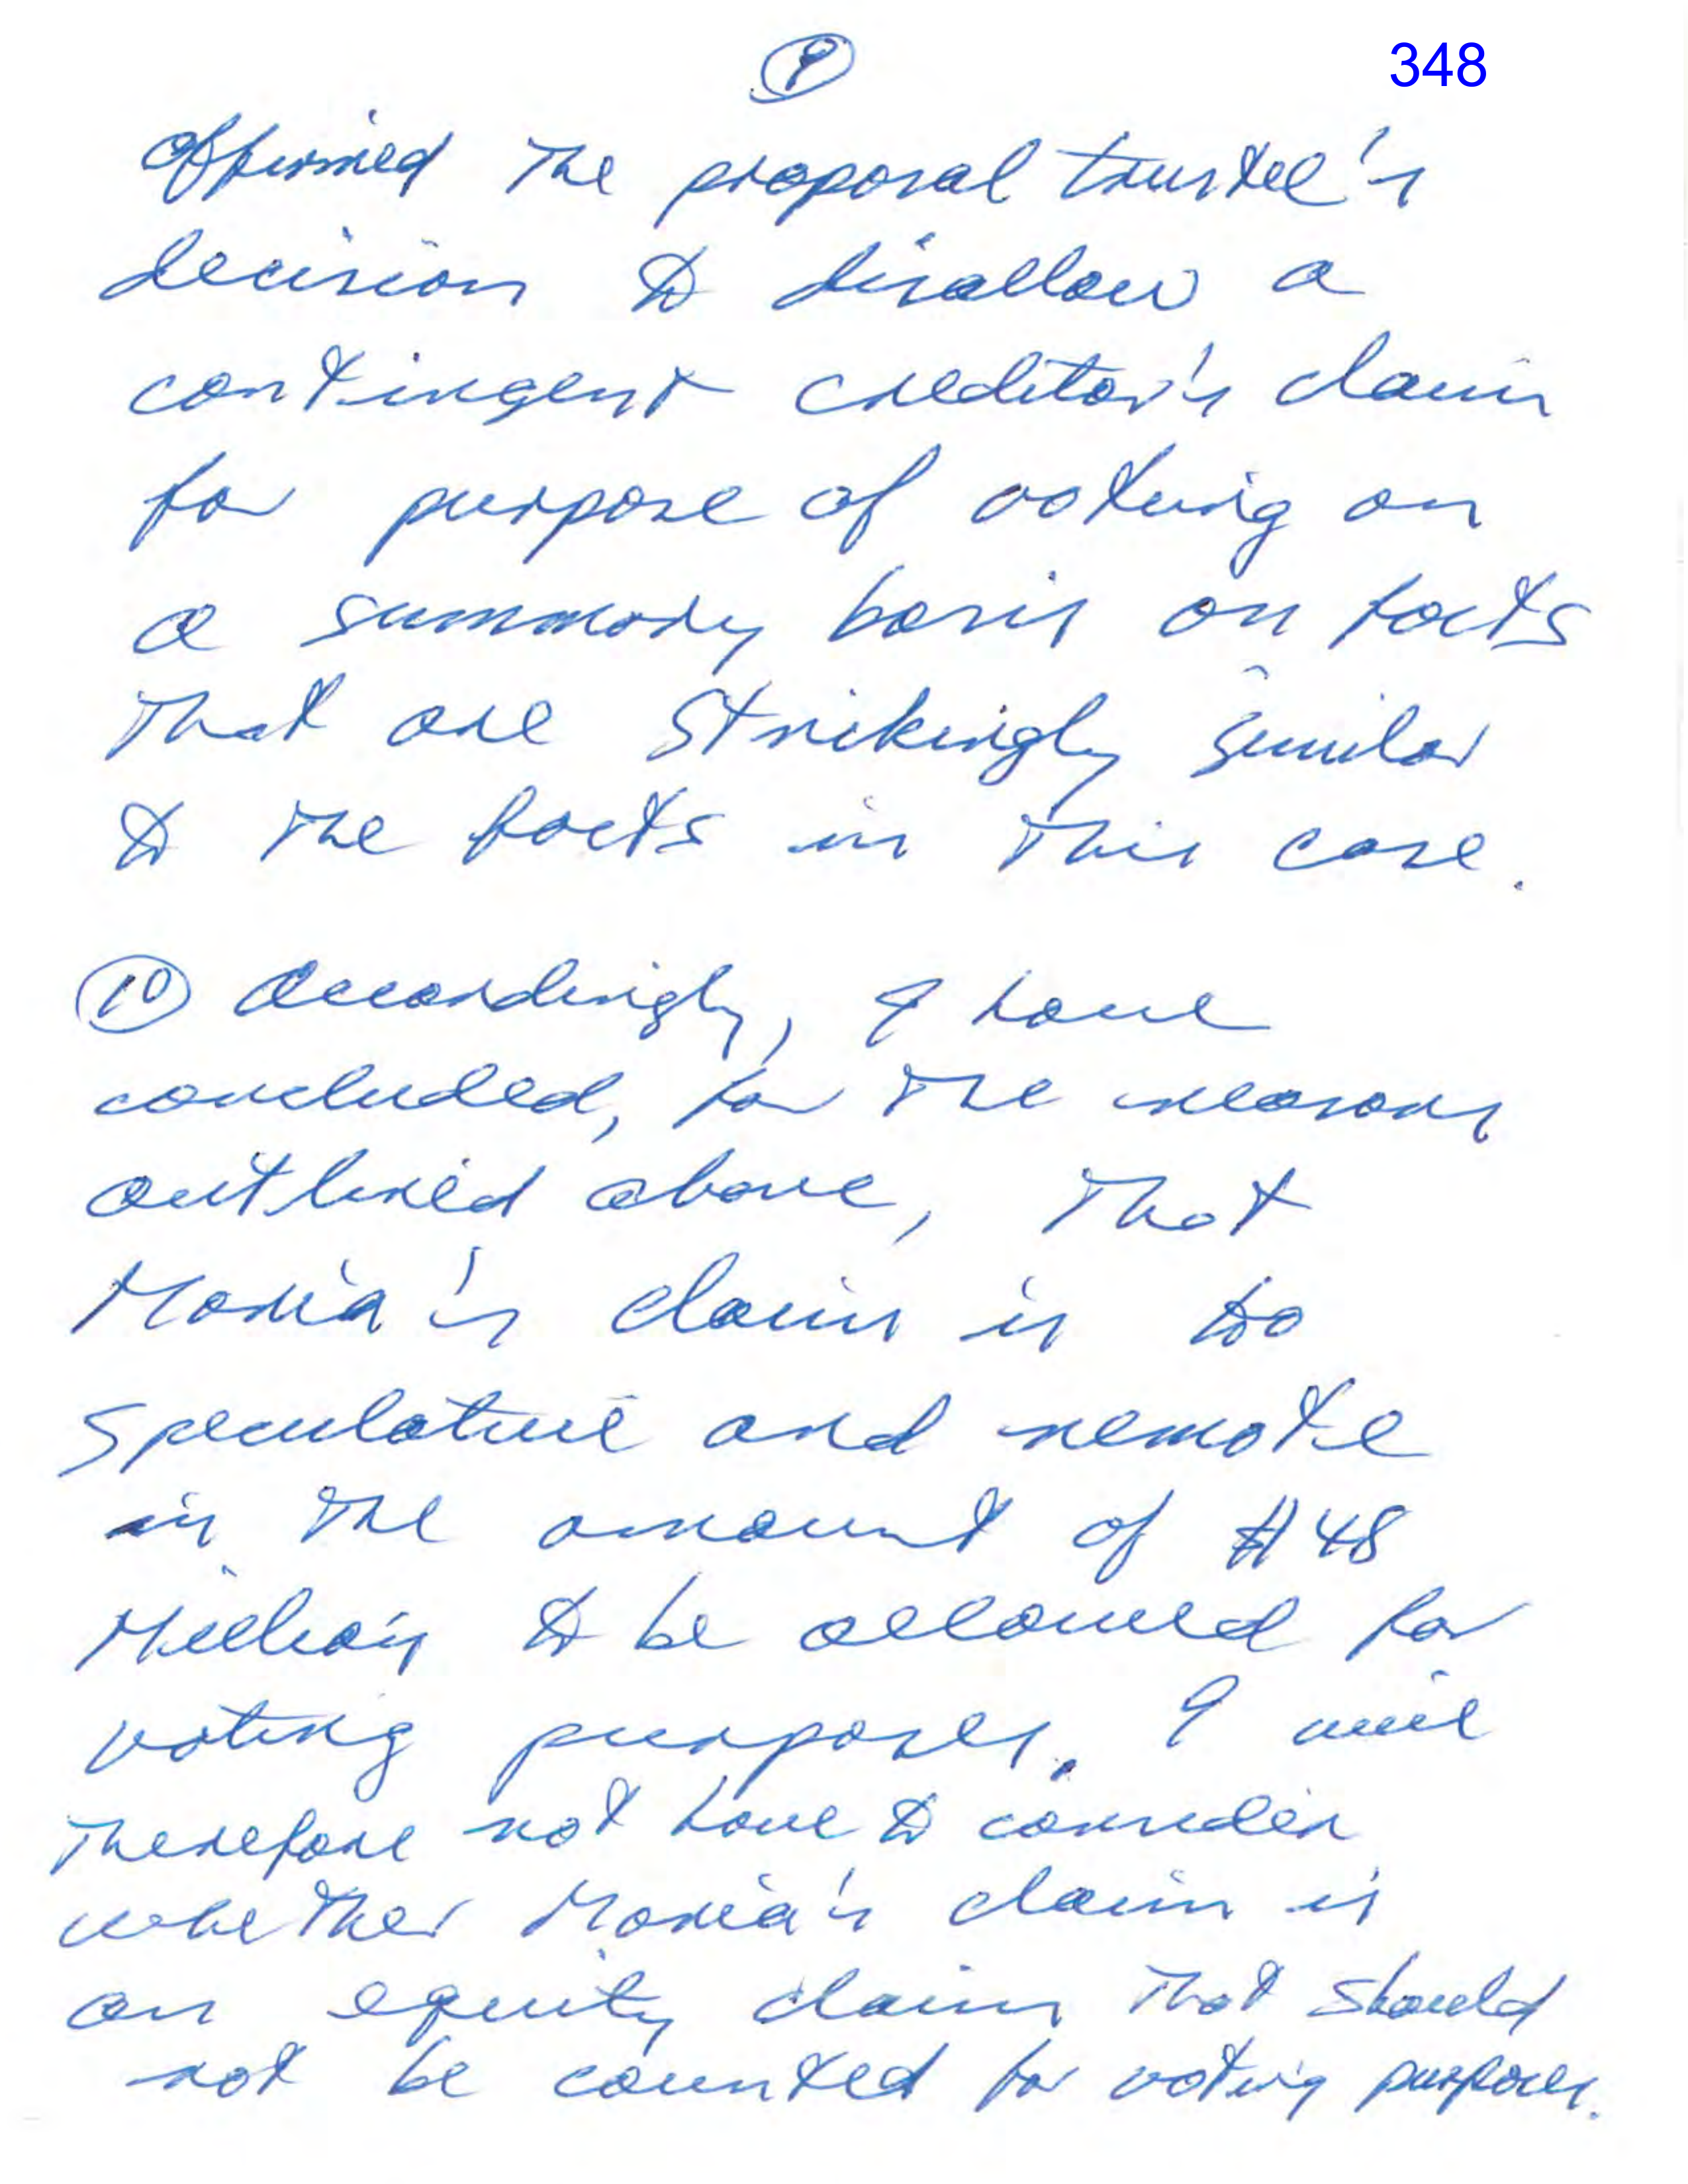 9
348
affirmed the proposal trustee's
decision to disallow a
contingent creditor's claim
for purpose of voting on
a summary basis on facts
that are strikingly similar
to the facts in this case.
10 Accordingly, I have
concluded, for the reasons
outlined above, that
Moria's claim is too
speculative and remote
in the amount of $48
Million to be allowed for
voting purposes. I will
therefore not have to consider
whether Moria's claim is
an equity claim that should
not be counted for voting purposes.